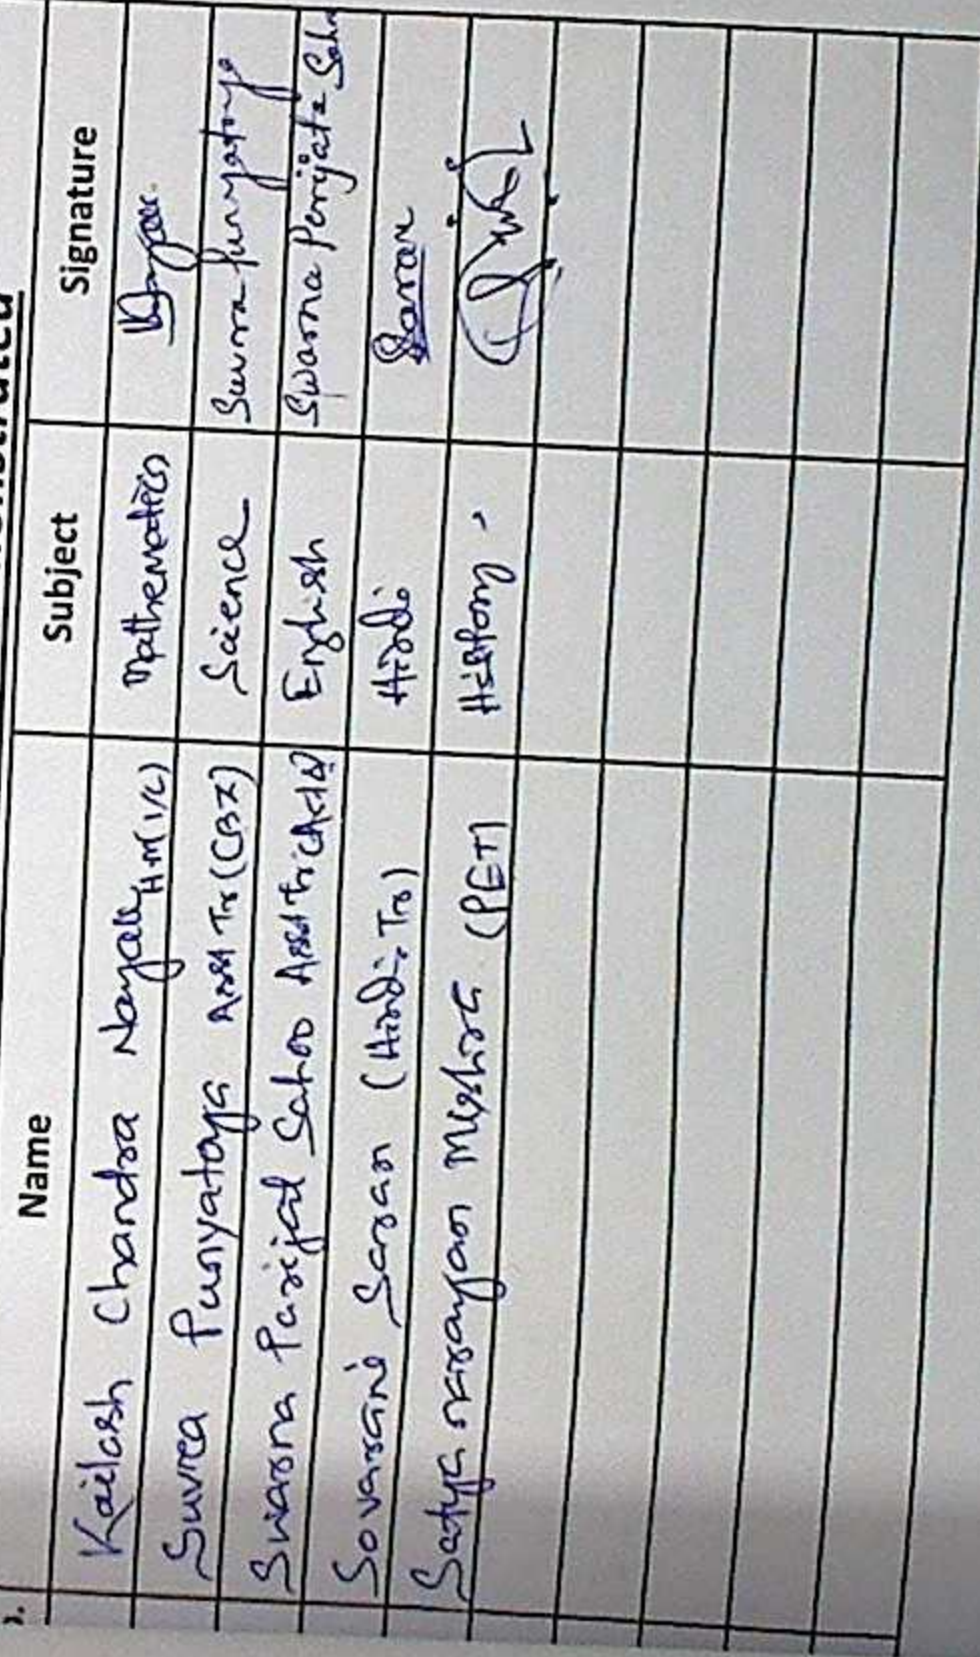 Name Subject Signature
Kailash Chandra Nayak H.M(I/C) Mathematics
Suvra Punyatoya Asst Tr (CBZ) Science Suvra Punyatoya
Swarna Parijat Sahoo Asst Tr English Swarna Parijata Saho
Sovarani Saran (Hindi Tr) Hindi Saran
Satya narayan Mishra (PET) History